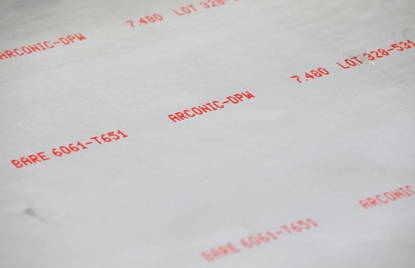 ARCONIC-DPW 7.480 LOT 328-531
BARE 6061-T651 ARCONIC-DPW 7.480 LOT 328-531
BARE 6061-T651 ARCONIC